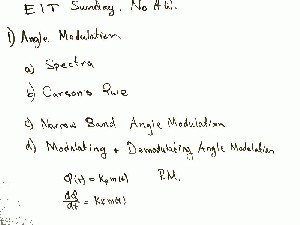 EIT Sunday. No
1) Angle Modulation
a) Spectra
b) Carson's Rule
c) Narrow Band Angle Modulation
d) Modulating + Demodulating Angle Modulation
φ(t) = kp m(t) P.M.
dφ/dt = kf m(t)